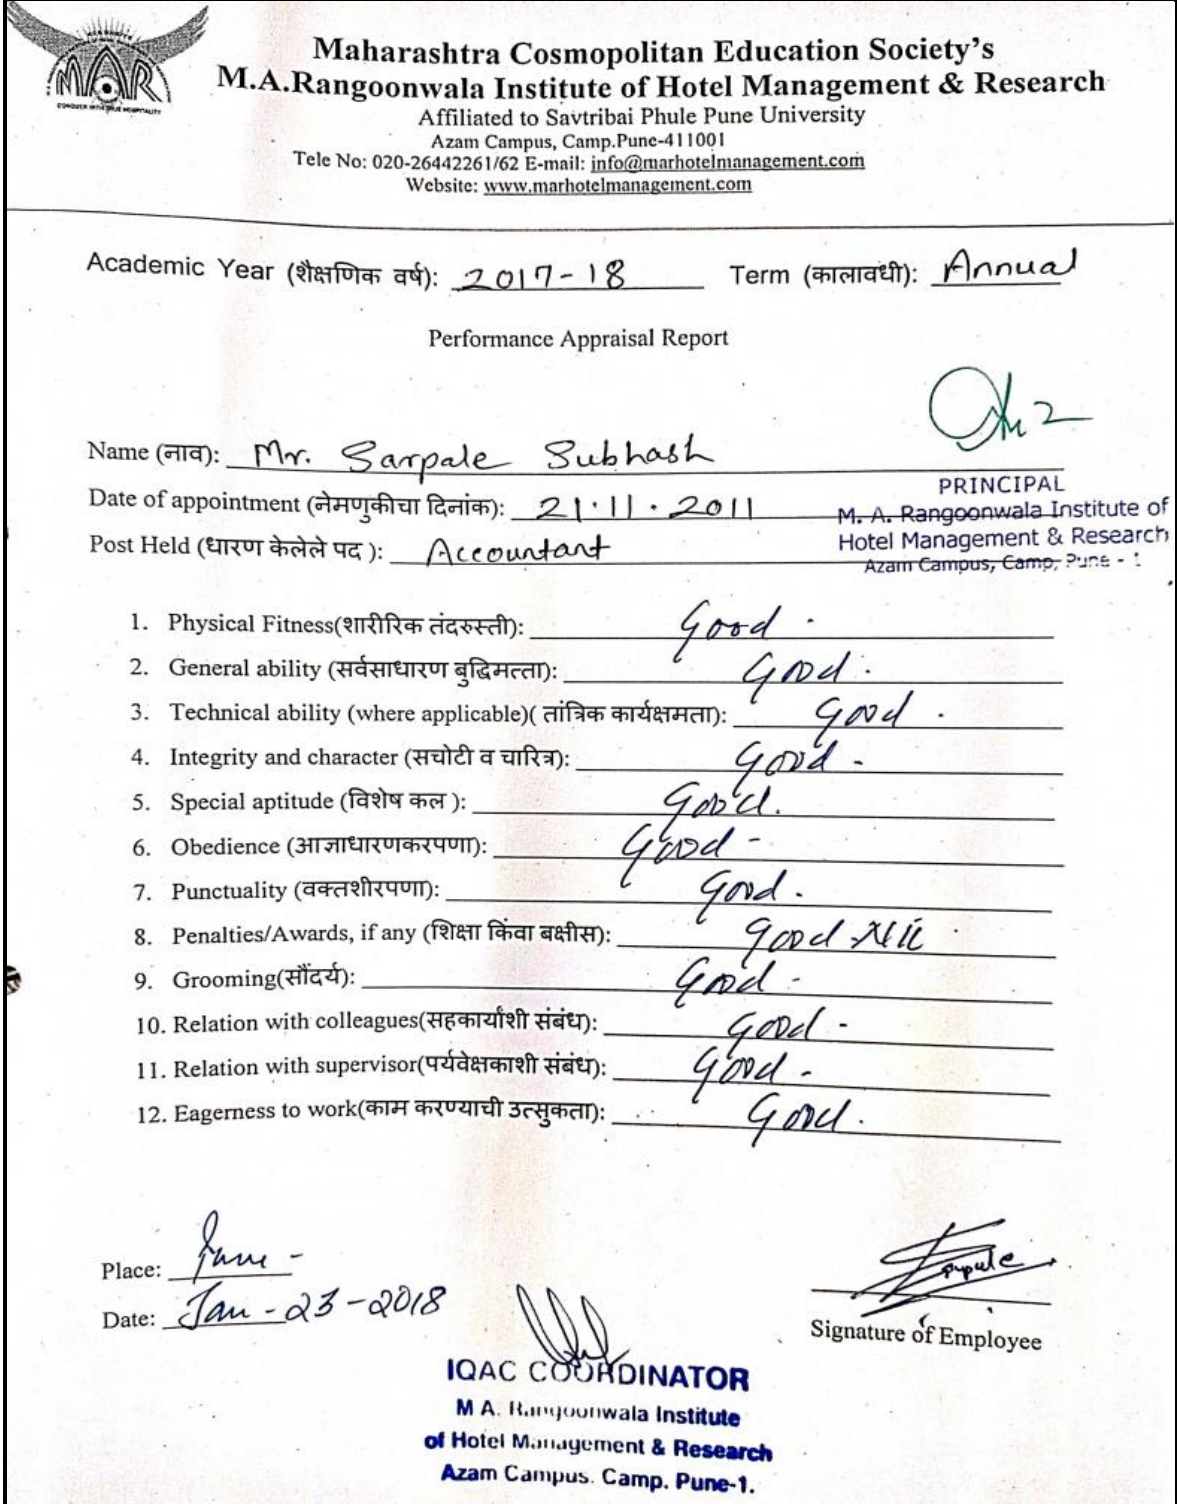 MAR
CONQUER WITH TRUE HOSPITALITY
Maharashtra Cosmopolitan Education Society's
M.A.Rangoonwala Institute of Hotel Management & Research
Affiliated to Savtribai Phule Pune University
Azam Campus, Camp.Pune-411001
Tele No: 020-26442261/62 E-mail: info@marhotelmanagement.com
Website: www.marhotelmanagement.com
Academic Year (शैक्षणिक वर्ष): 2017-18 Term (कालावधी): Annual
Performance Appraisal Report
Name (नाव): Mr. Sarpale Subhash
Date of appointment (नेमणुकीचा दिनांक): 21.11.2011
Post Held (धारण केलेले पद ): Accountant
PRINCIPAL
M. A. Rangoonwala Institute of
Hotel Management & Research
Azam Campus, Camp, Pune - 1
1. Physical Fitness(शारीरिक तंदरुस्ती): Good .
2. General ability (सर्वसाधारण बुद्धिमत्ता): Good .
3. Technical ability (where applicable)( तांत्रिक कार्यक्षमता): Good .
4. Integrity and character (सचोटी व चारित्र): Good -
5. Special aptitude (विशेष कल ): Good.
6. Obedience (आज्ञाधारणकरपणा): Good -
7. Punctuality (वक्तशीरपणा): Good .
8. Penalties/Awards, if any (शिक्षा किंवा बक्षीस): Good NIL
9. Grooming(सौंदर्य): Good -
10. Relation with colleagues(सहकार्यांशी संबंध): Good -
11. Relation with supervisor(पर्यवेक्षकाशी संबंध): Good -
12. Eagerness to work(काम करण्याची उत्सुकता): Good .
Place: Pune -
Date: Jan - 23 - 2018
Signature of Employee
IQAC COORDINATOR
M A. Rangoonwala Institute
of Hotel Management & Research
Azam Campus. Camp. Pune-1.